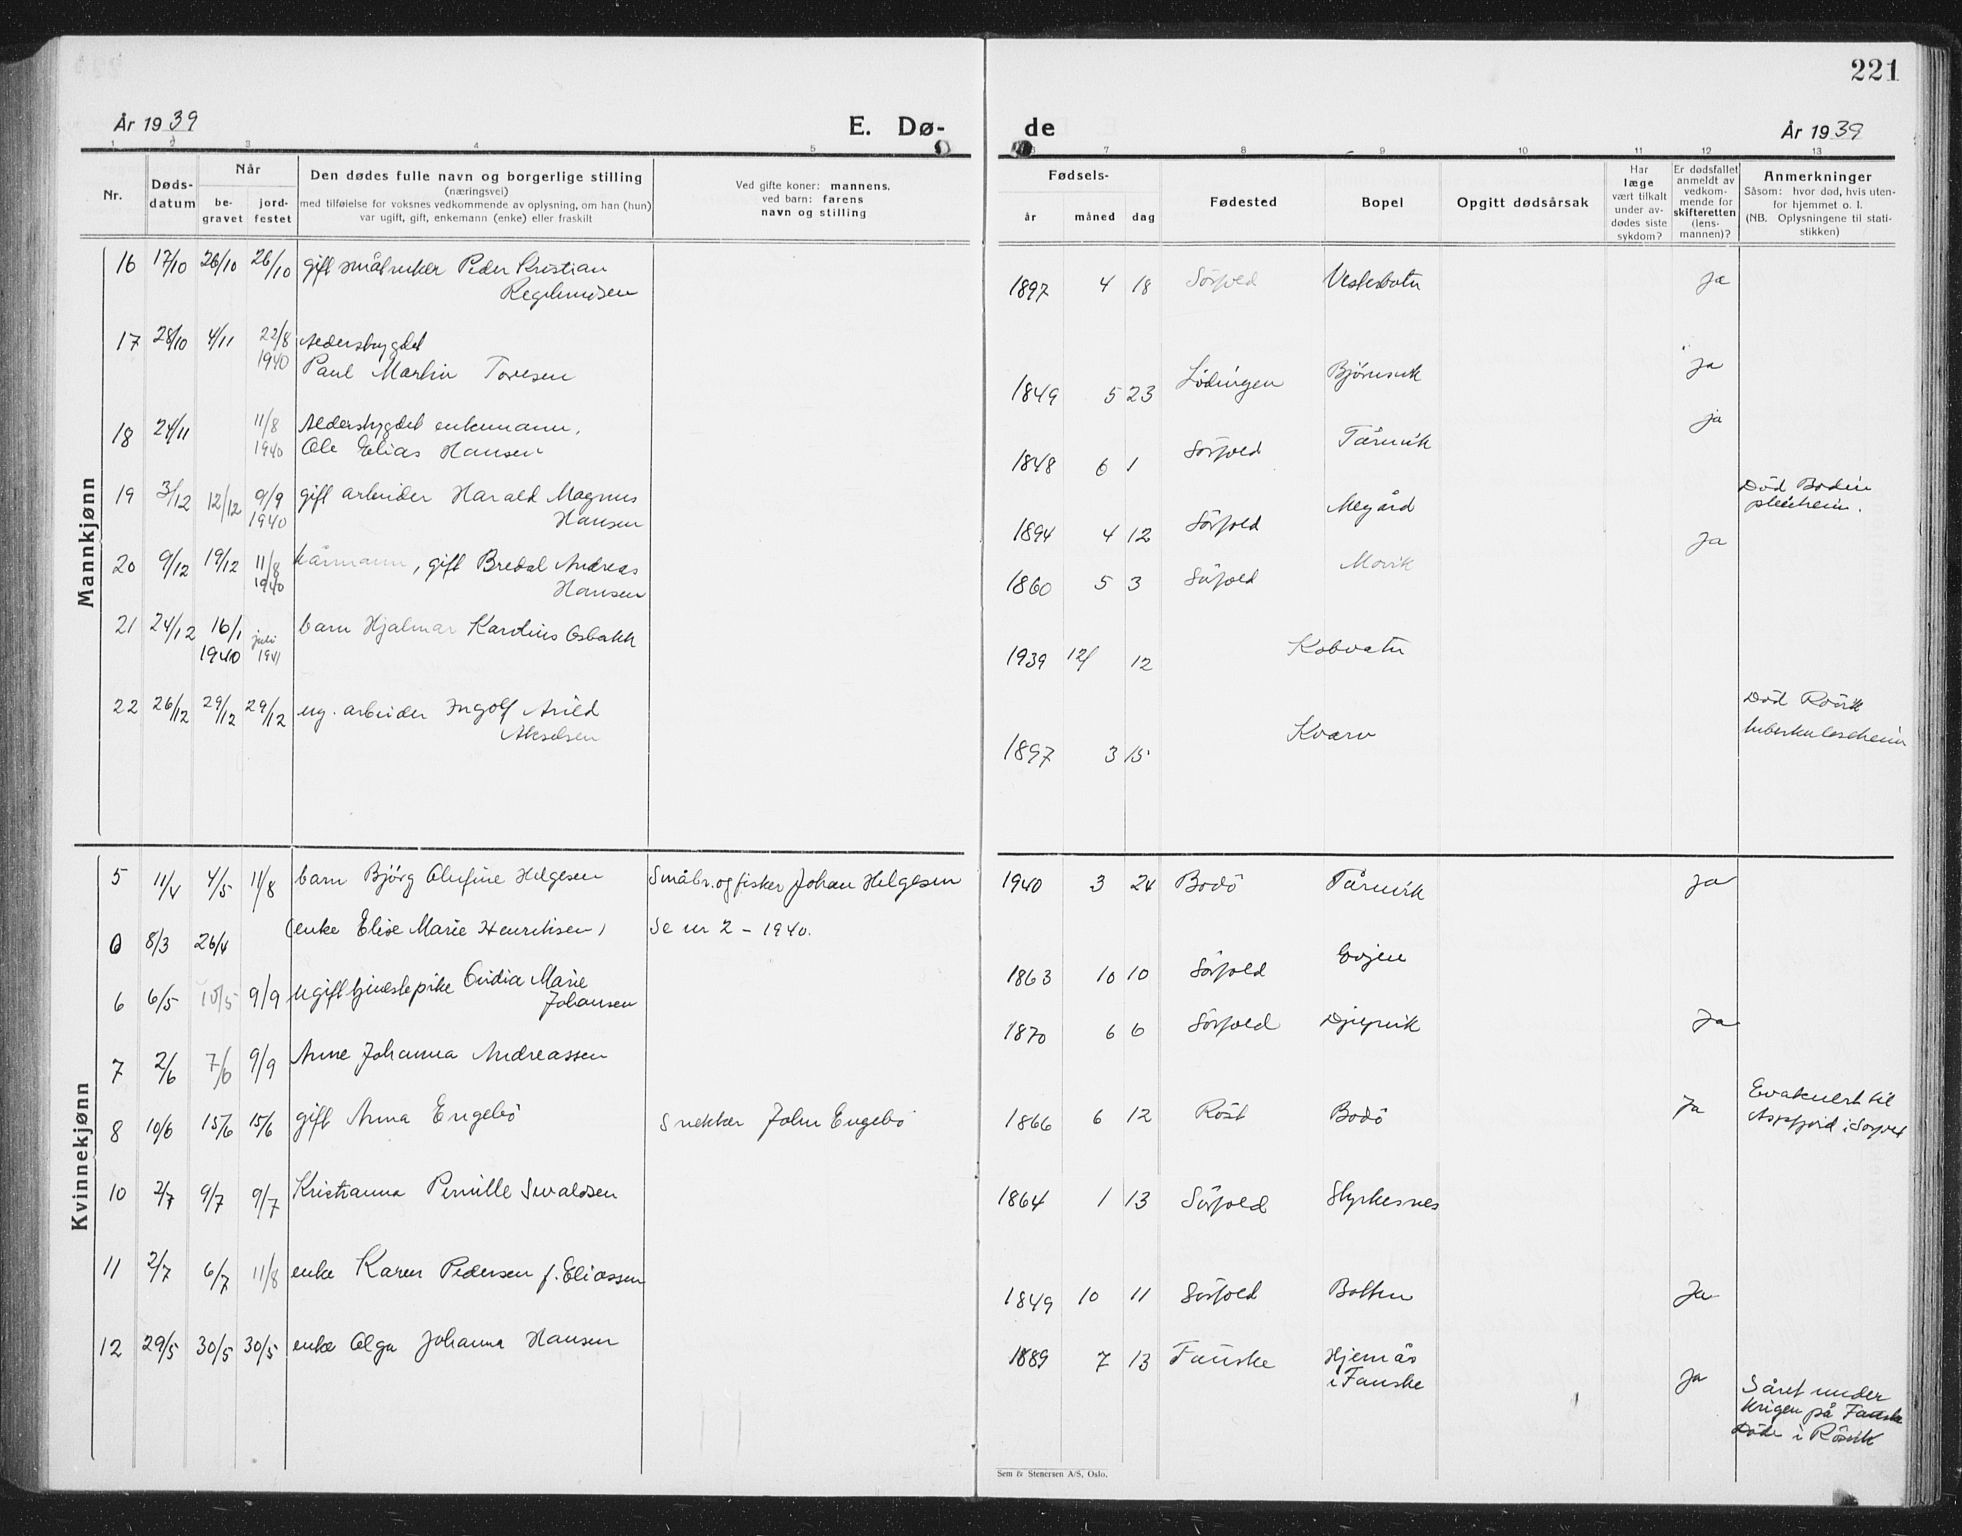 221
År 1939
E. Dø-
de
År 1939
1 2 3 4 5 6 7 8 9 10 11 12 13
Nr.
Døds-
datum
Når
be-
gravet
jord-
festet
Den dødes fulle navn og borgerlige stilling
(næringsvei)
med tilføielse for voksnes vedkommende av oplysning, om han (hun)
var ugift, gift, enkemann (enke) eller fraskilt
Ved gifte koner: mannens,
ved barn: farens
navn og stilling
Fødsels-
år måned dag
Fødested
Bopel
Opgitt dødsårsak
Har
læge
vært tilkalt
under av-
dødes siste
sykdom?
Er dødsfallet
anmeldt av
vedkom-
mende for
skifteretten
(lens-
mannen)?
Anmerkninger
Såsom: hvor død, hvis uten-
for hjemmet o. l.
(NB. Oplysningene til stati-
stikken)
Mannkjønn
16 17/10 26/10 26/10 gift småbruker Peder Kristian
1897 4 18 Sörfold Ja
17 28/10 4/11 22/8 Alderstrygdet
1940 Paul Martin Toresen
1849 5 23 Lødingen Bjørnsvik Ja
18 24/11 11/8 Alderstrygdet enkemann,
1940 Ole Elias Hansen
1848 6 1 Sörfold Tårnvik ja
19 3/12 12/12 9/9 gift arbeider Harald Magnus
1940 Hansen
1894 4 12 Sörfold Megård Död Bodin
pleieheim.
20 9/12 19/12 11/8 kårmann, gift Bredal Andreas
1940 Hansen
1860 5 3 Sörfold Movik Ja
21 24/12 16/1 juli barn Hjalmar Karolius Osbakk
1940 1941
1939 12/ 12 Kobvatn
22 26/12 29/12 29/12 ug. arbeider Ingolf Arild
Akselsen
1897 3 15 Kvarv Död Rösvik
tuberkuloseheim
Kvinnekjønn
5 11/4 4/5 11/8 barn Bjørg Olufine Helgesen Småbr. og fisker Johan Helgesen
1940 3 24 Bodö Tårnvik Ja
6 8/3 26/4 (enke Elise Marie Henriksen) Se nr 2 - 1940.
1863 10 10 Sörfold Evjen
6 6/5 10/5 9/9 ugift tjenestepike Ovidia Marie
Johansen
1870 6 6 Sörfold Djupvik Ja
7 2/6 7/6 9/9 Anne Johanna Andreassen
8 10/6 15/6 15/6 gift Anna Engebö Snekker John Engebö
1866 6 12 Röst Bodö Ja Evakuert til
Aspfjord i Sörfold
10 2/7 9/7 9/7 Kristianna Pernille Sivaldsen
1864 1 13 Sörfold Styrkesnes
11 2/7 6/7 11/8 enke Karen Pedersen f. Eliassen
1849 10 11 Sörfold Botten Ja
12 29/5 30/5 30/5 enke Olga Johanna Hansen
1889 7 13 Fauske Hjemås
i Fauske Ja Såret under
krigen på Fauske
Döde i Rösvik
Sem & Stenersen A/S, Oslo.